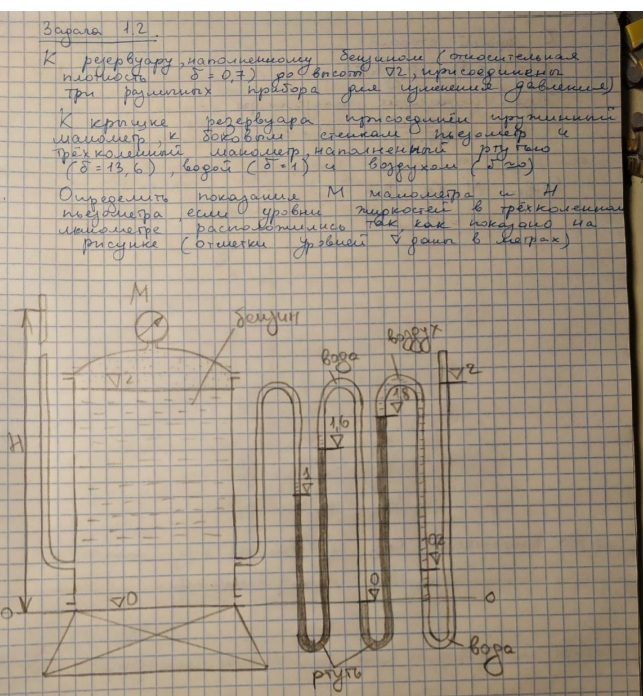 Задача 1.2.
К резервуару, наполненному бензином (относительная
плотность δ = 0,7) до высоты ▽2, присоединены
три различных прибора для изменения давления)
К крышке резервуара присоединён пружинный
манометр, к боковым стенкам пьезометр и
трёхколенный манометр, наполненный ртутью
(δ = 13,6), водой (δ = 1) и воздухом (δ ≈ 0)
Определить показания М манометра и Н
пьезометра, если уровни жидкостей в трёхколенном
манометре расположились так, как показано на
рисунке (отметки уровней ▽ даны в метрах)
М
бензин
вода
воздух
▽2
▽2
1,8
▽
1,6
▽
Н
1
▽
0,2
▽
0
▽0
▽0
0
ртуть
вода